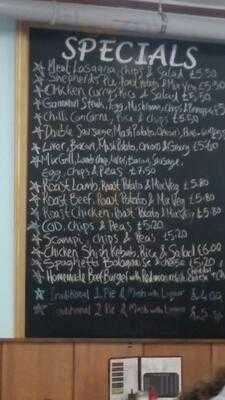 SPECIALS
Meat Lasagna, Chips & Salad £5.50
Shepherds Pie, Roast Potato & Mix Veg £5.50
Chicken Curry, Rice & Salad £5.50
Gammon Steak, Egg, Mushroom, Chips & Pineapple
Chilli Con Carne, Rice & Chips £5.50
Double Sausage, Mash Potato, Onion, Peas
Liver, Bacon, Mash Potato, Onion & Gravy £5.60
Mix Grill, Lamb Chop, Liver, Bacon, Sausage,
Egg, Chips & Peas £7.50
Roast Lamb, Roast Potato & Mix Veg £5.80
Roast Beef, Roast Potatoes & Mix Veg £5.80
Roast Chicken, Roast Potato & Mix Veg £5.80
Cod, Chips & Peas £5.20
Scampi, Chips & Peas £5.20
Chicken Shish Kebab, Rice & Salad £6.00
Spaghetti Bolognaise & Cheese £5.20
Homemade Beef Burger with
Traditional 1 Pie & Mash with Liquor £4.00
Traditional 2 Pie & Mash with Liquor